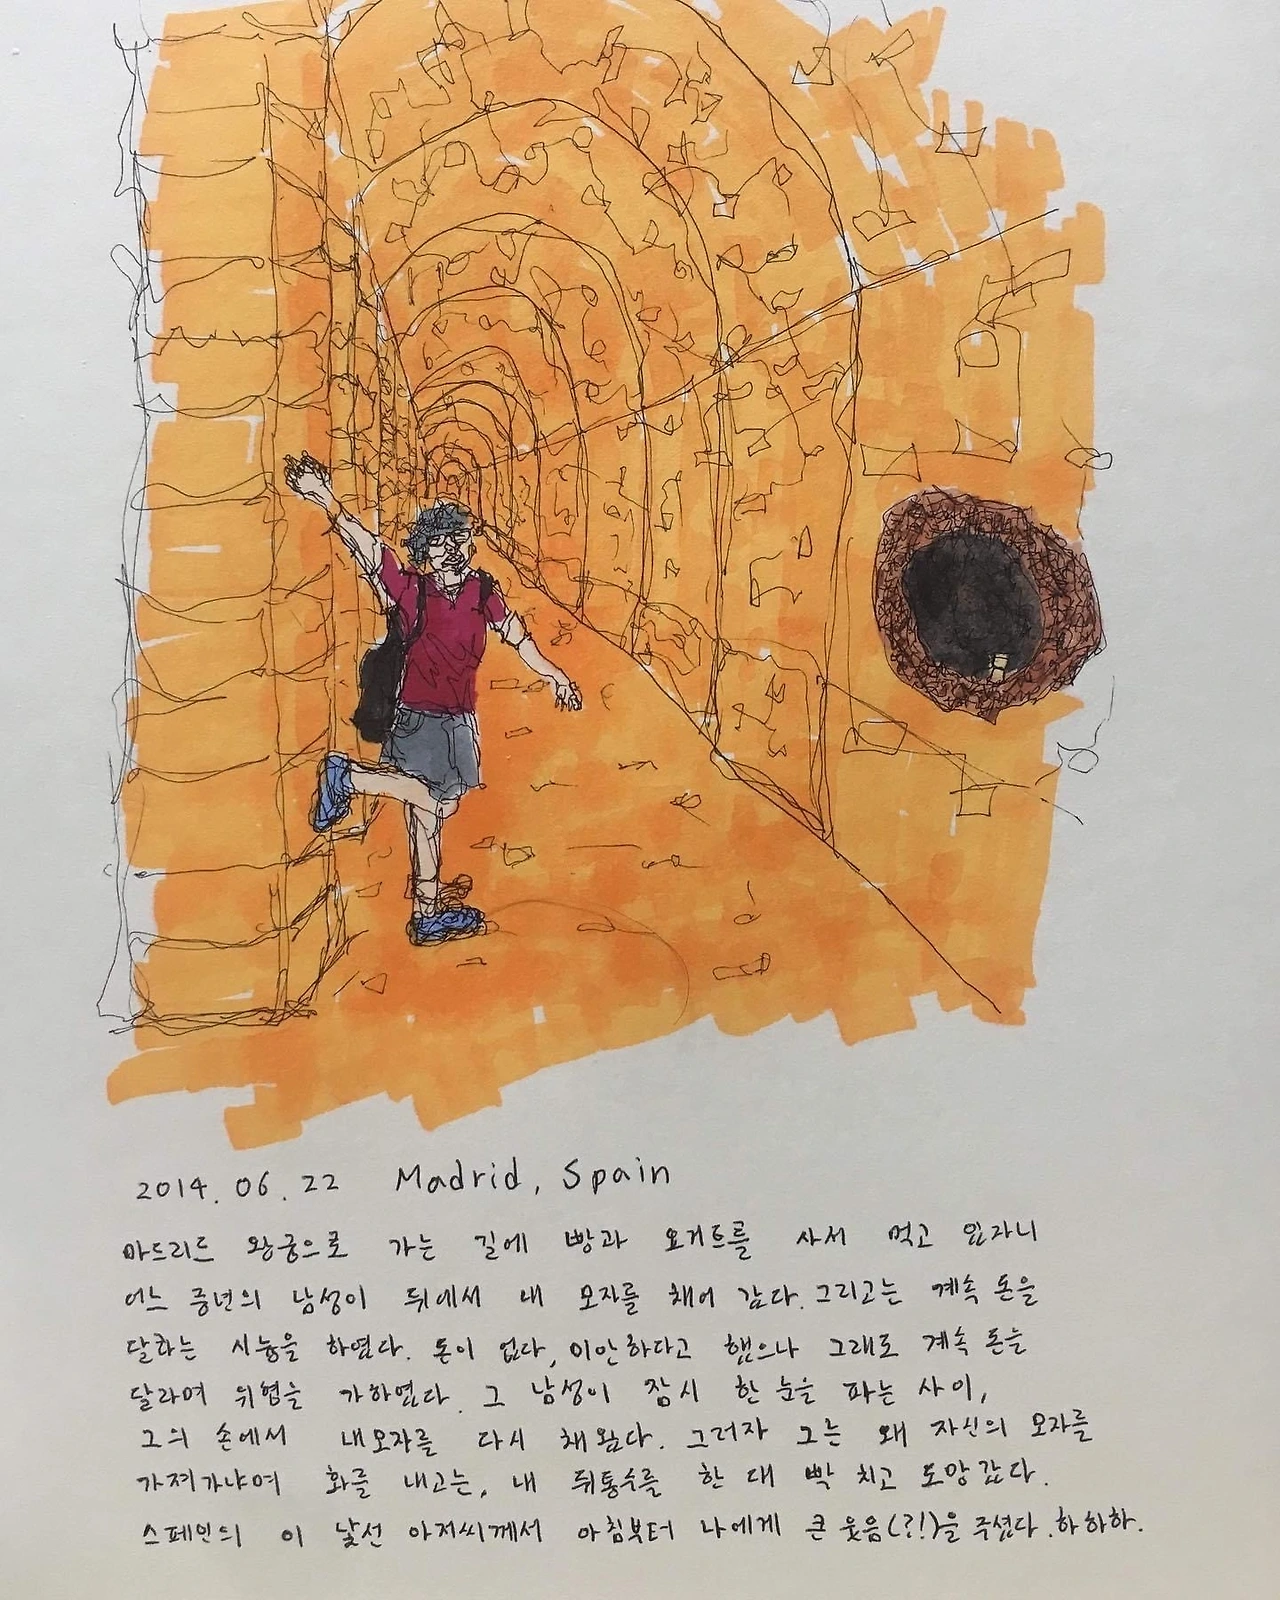 2014. 06. 22 Madrid, Spain
마드리드 왕궁으로 가는 길에 빵과 요거트를 사서 먹고 있자니
어느 중년의 남성이 뒤에서 내 모자를 채어 갔다. 그리고는 계속 돈을
달라는 시늉을 하였다. 돈이 없다, 미안하다고 했으나 그래도 계속 돈을
달라며 위협을 가하였다. 그 남성이 잠시 한 눈을 파는 사이,
그의 손에서 내모자를 다시 채왔다. 그러자 그는 왜 자신의 모자를
가져가냐며 화를 내고는, 내 뒤통수를 한 대 빡 치고 도망갔다.
스페인의 이 낯선 아저씨께서 아침부터 나에게 큰 웃음(?!)을 주셨다. 하하하.